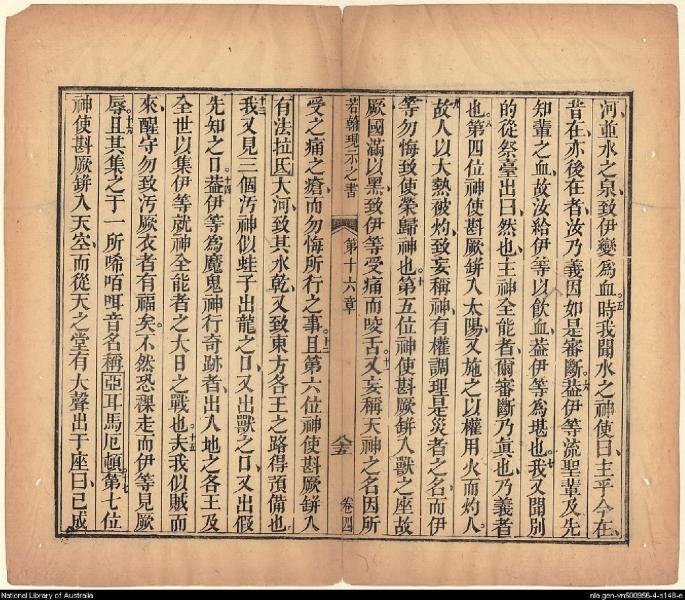 河並水之泉致伊變爲血○五時我聞水之神使曰主乎今在
昔在亦後在者汝乃義因如是審斷○六葢伊等流聖輩及先
知輩之血故汝給伊等以飲血葢伊等爲堪也○七我又聞別
的從祭臺出曰然也主神全能者爾審斷乃眞也乃義者
也○八第四位神使斟厥鉼入太陽又施之以權用火而灼人○九
故人以大熱被灼致妄稱神有權調理是災者之名而伊
等勿悔致使榮歸神也○十第五位神使斟厥鉼入獸之座故
厥國滿以黑致伊等受痛而咬舌○十一又妄稱天神之名因所
若翰現示之書 第十六章 卷四
受之痛之瘡而勿悔所行之事○十二且第六位神使斟厥鉼入
有法拉氐大河致其水乾又致東方各王之路得預備也
○十三我又見三個汚神似蛙子出龍之口又出獸之口又出假
先知之口○十四葢伊等爲魔鬼神行奇跡者出入地之各王及
全世以集伊等就神全能者之大日之戰也○十五夫我似賊而
來醒守勿致汚厥衣者有福矣不然恐裸走而伊等見厥
辱○十六且其集之于一所唏咟咡音名稱亞耳馬厄頓○十七第七位
神使斟厥鉼入天空而從天之堂有大聲出于座曰已成
National Library of Australia
nla.gen-vn500956-4-s148-e